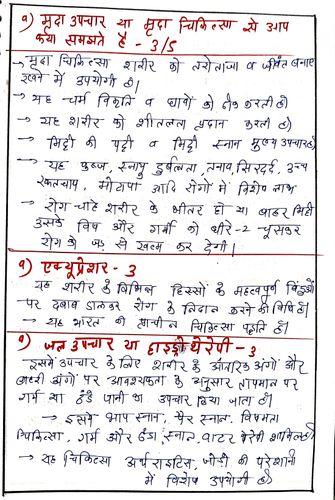 १) मृदा उपचार या मृदा चिकित्सा से आप
क्या समझते है - 3/5
→ मृदा चिकित्सा शरीर को तरोताजा व जीवंत बनाए
रखने में उपयोगी है।
→ यह चर्म विकृति व घावों को ठीक करती है।
→ यह शरीर को शीतलता प्रदान करती है।
→ मिट्टी की पट्टी व मिट्टी स्नान मुख्य उपचार है।
→ यह कब्ज, स्नायु दुर्बलता, तनाव, सिरदर्द, उच्च
रक्तचाप, मोटापा आदि रोगों में विशेष लाभ
→ रोग चाहे शरीर के भीतर हो या बाहर मिट्टी
उसके विष और गर्मी को धीरे-2 चूसकर
रोग को जड़ से खत्म कर देगी।
१) एक्यूप्रेशर - 3
यह शरीर के विभिन्न हिस्सों के महत्वपूर्ण बिंदुओं
पर दबाव डालकर रोग के निदान करने की विधि है।
→ यह भारत की प्राचीन चिकित्सा पद्धति है।
१) जल उपचार या हाइड्रोथेरेपी - 3
इसमें उपचार के लिए शरीर के आंतरिक अंगों और
बाहरी अंगों पर आवश्यकता के अनुसार तापमान पर
गर्म या ठंडे पानी का उपचार दिया जाता है।
→ इसमें भाप स्नान, पैर स्नान,
चिकित्सा, गर्म और ठंडा स्नान, वाटर थेरेपी शामिल है।
→ यह चिकित्सा अर्थराइटिस, जोड़ों की परेशानी
में विशेष उपयोगी है।